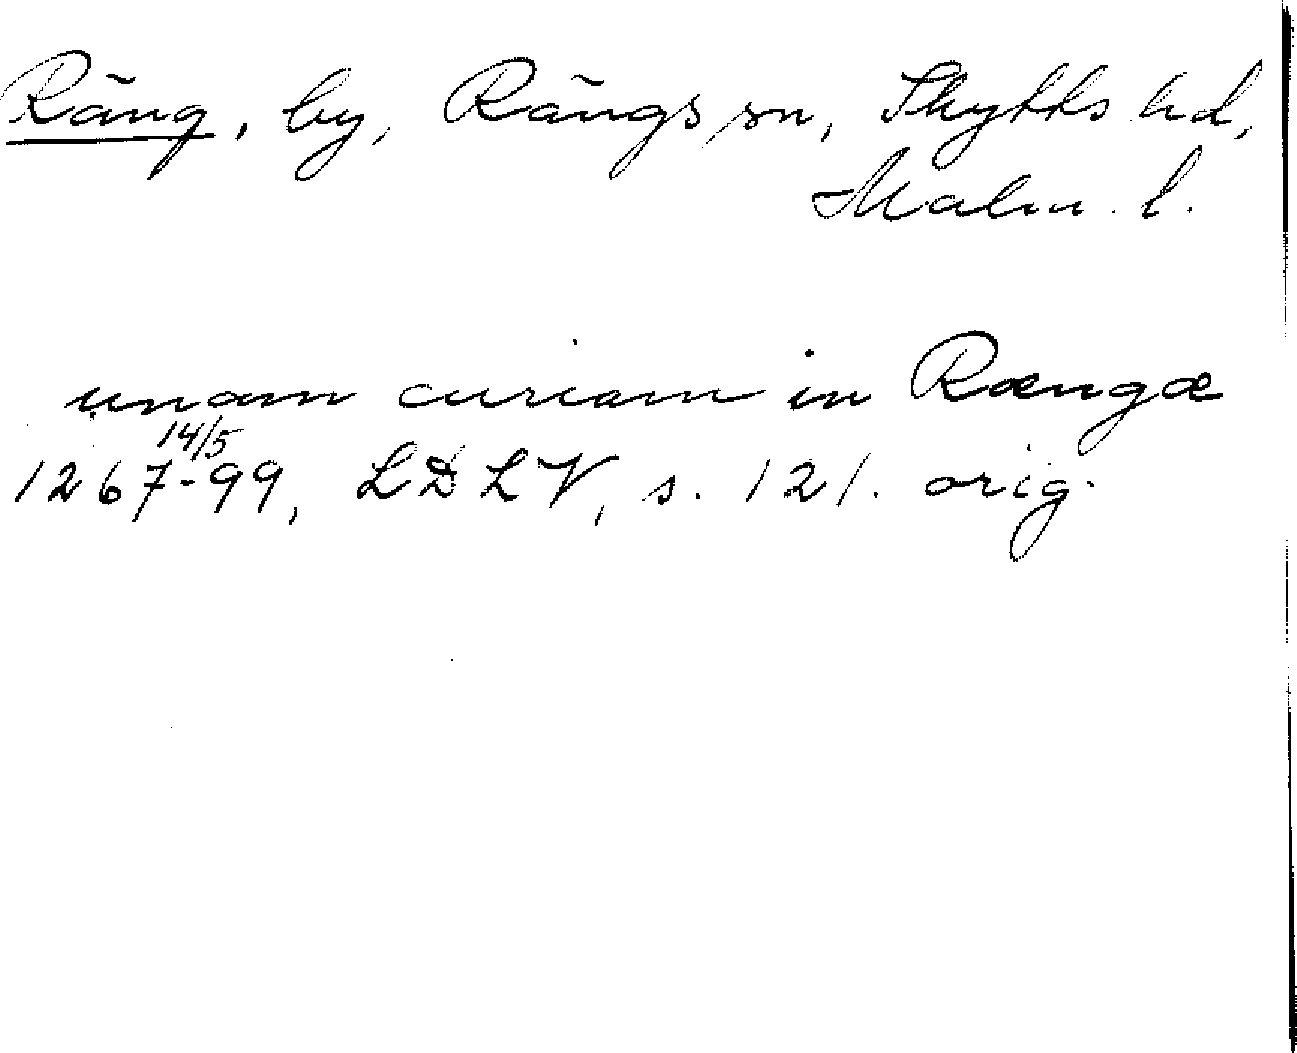 Räng, by, Rängs sn, Skytts hd,
Malm. l.
unam curiam in Rængæ
14/5
1267-99, LDLV, s. 121. orig.